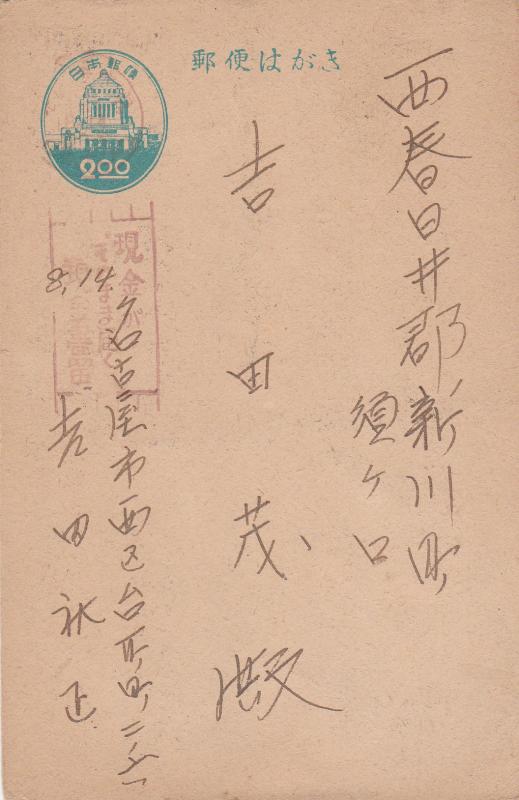 郵便はがき
日本郵便
2.00
西春日井郡新川町
須ヶ口
吉田茂殿
8,14.
名古屋市西区台所町二ノ
吉田
現金が
そのまま